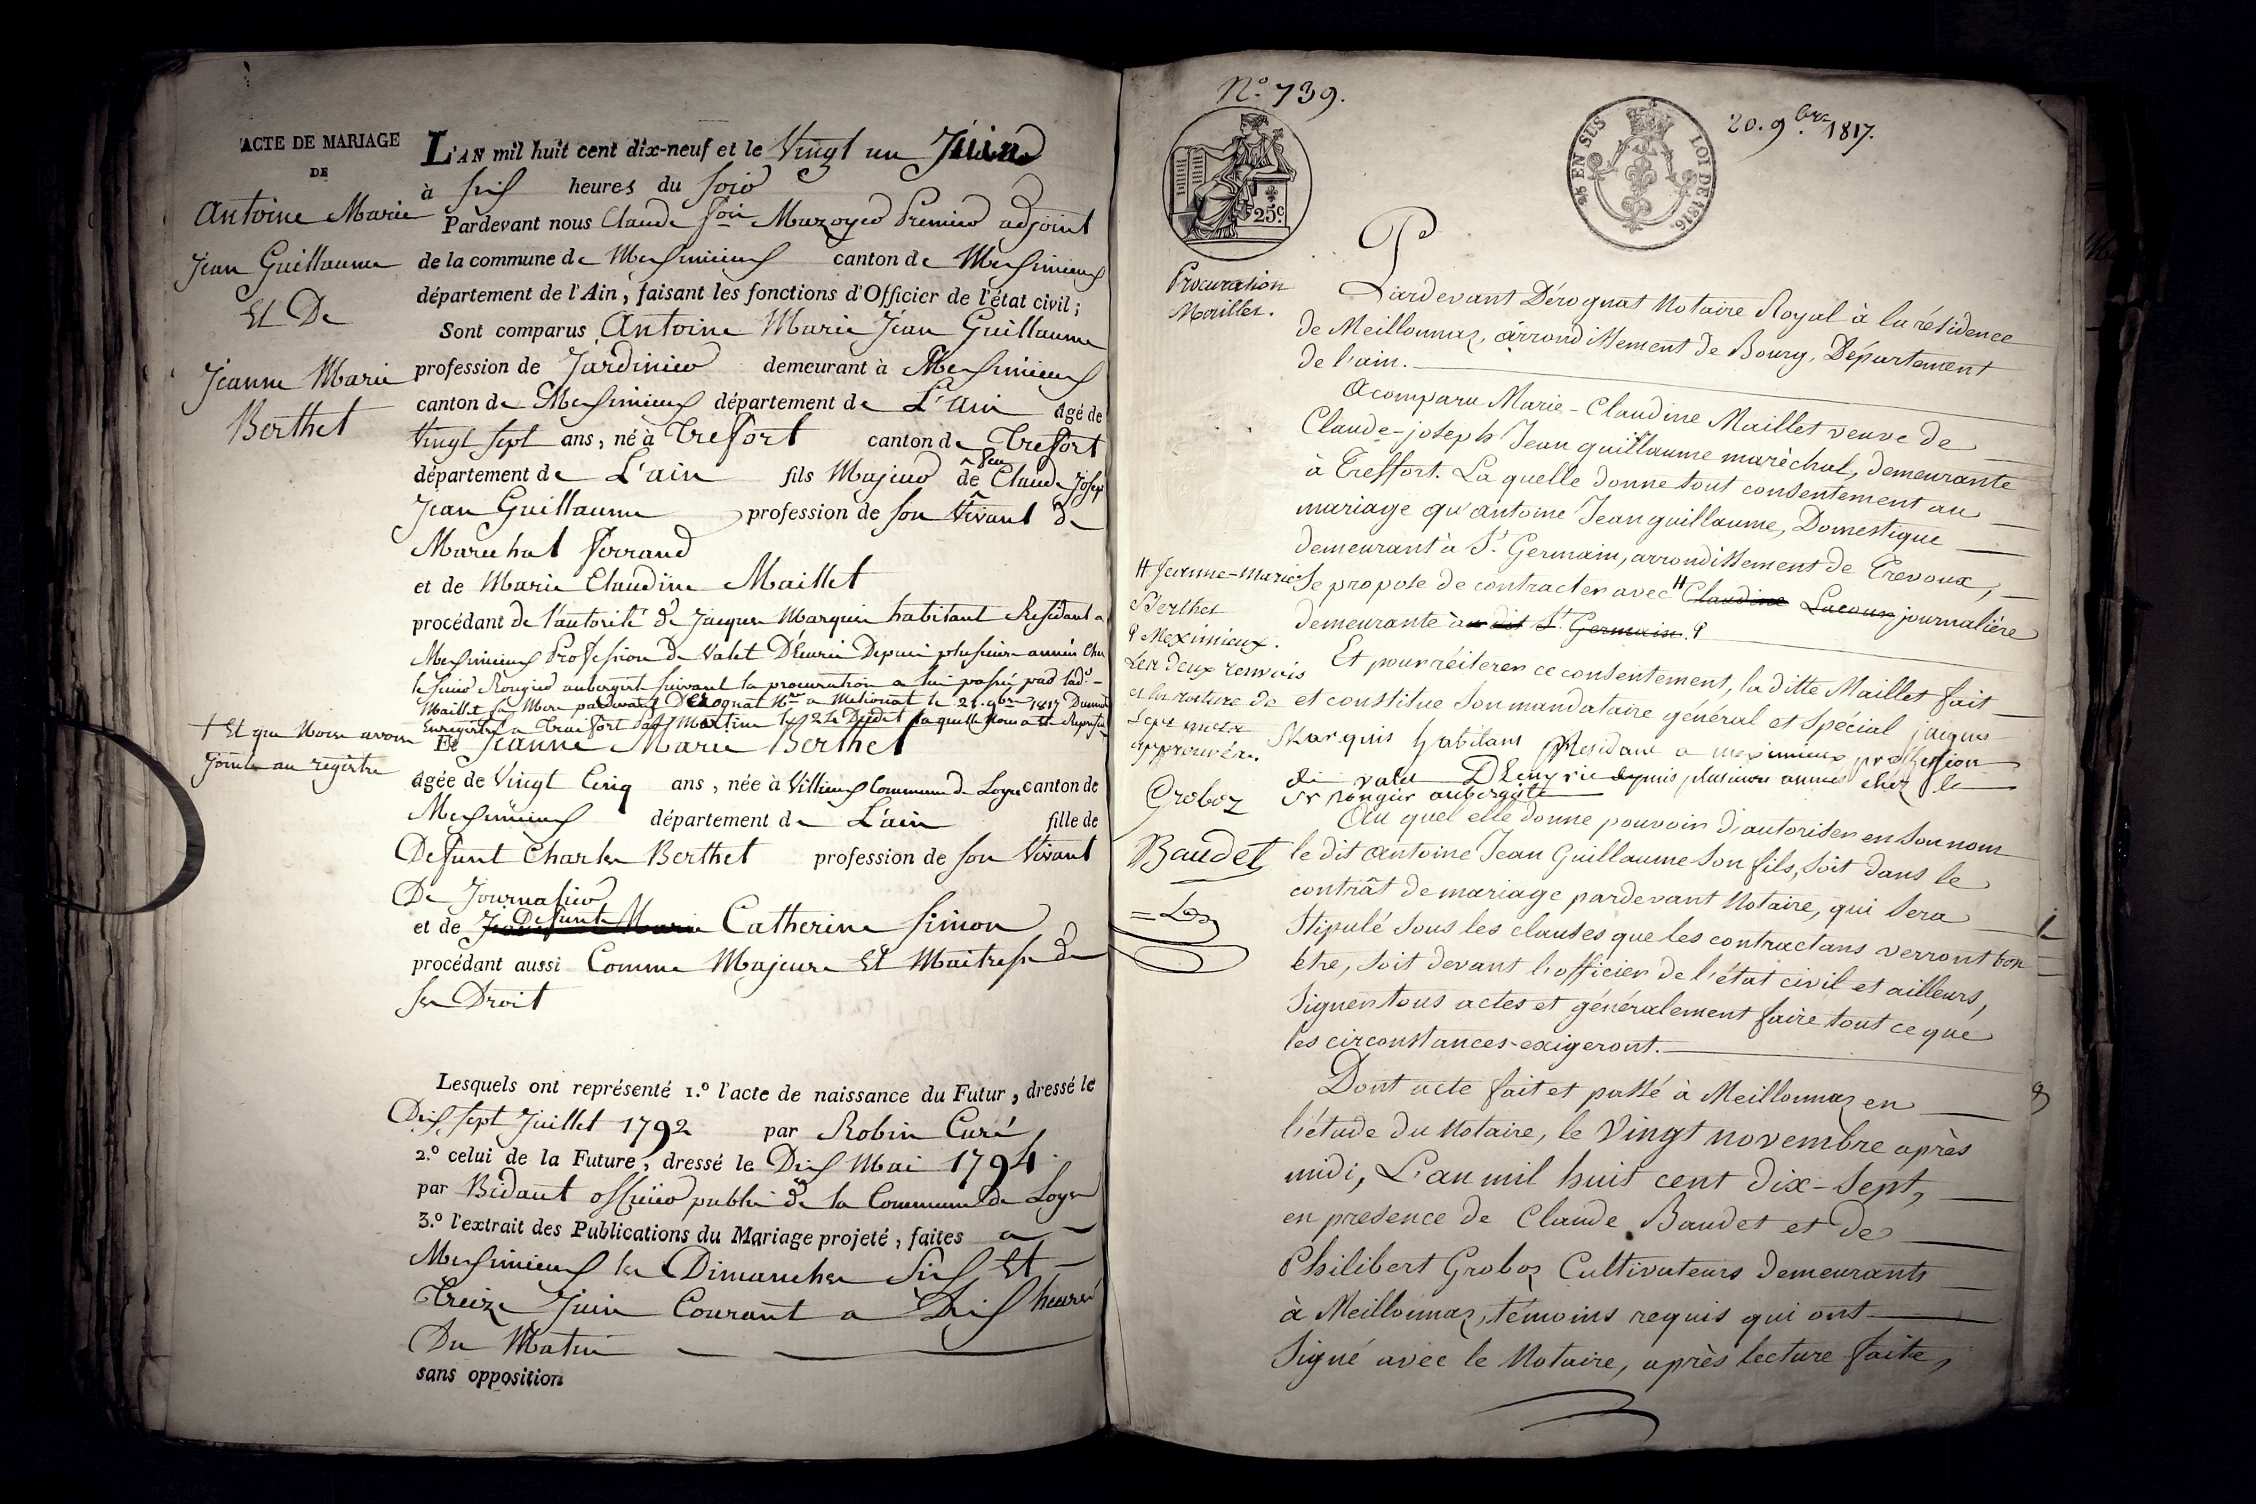 ACTE DE MARIAGE
DE
Antoine Marie
Jean Guillaume
Et De
Jeanne Marie
Berthet
L'AN mil huit cent dix-neuf et le Vingt un Juin
à six heures du soir
Pardevant nous Claude Mazoyer Premier adjoint
de la commune de Meximieux canton de Meximieux
département de l'Ain, faisant les fonctions d'Officier de l'état civil;
Sont comparus Antoine Marie Jean Guillaume
profession de Jardinier demeurant à Meximieux
canton de Meximieux département de L'Ain agé de
Vingt sept ans, né à Trefort canton de Trefort
département de L'ain fils Majeur de feu Claude Josep
Jean Guillaume profession de son Vivant de
Marechal ferrand
et de Marie Claudine Maillet
procédant de l'autorité de Jacques Marquis habitant Residant a
Meximieux Profession de Valet D'Ecurie Depuis plusieurs année Chez
le sieur Rougier aubergiste suivant la procuration a lui passée par lad.
Maillet sa Mere pardevant Derognat Nre a Melionat le 21. 9bre 1817
† Et que Nous avons
Jointe au registre
Et Jeanne Marie Berthet
agée de Vingt Cinq ans, née à Villieux Commune de Loyes canton de
Meximieux département de L'ain fille de
Defunt Charles Berthet profession de son Vivant
De Journalier
et de Defunte Catherine Simon
procédant aussi Comme Majeure Et Maitresse de
ses Droit
Lesquels ont représenté 1.º l'acte de naissance du Futur, dressé le
Dix sept Juillet 1792 par Robin Curé,
2.º celui de la Future, dressé le Dix Mai 1794.
par Bidaut officier public de la Commune de Loyes
3.º l'extrait des Publications du Mariage projeté, faites a
Meximieux les Dimanches Six Et
Treize Juin Courant a Dix heures
Du Matin
sans opposition
Nº 739.
25c
25 EN SUS LOI DE 1816
20. 9bre 1817.
Procuration
Maillet.
Pardevant Dérognat Notaire Royal à la résidence
de Meillonnaz, arrondissement de Bourg, Département
de l'ain.
A comparu Marie-Claudine Maillet veuve de
Claude-joseph Jean guillaume maréchal, demeurante
à Treffort. La quelle donne tout consentement au
mariage qu'antoine Jean guillaume, Domestique
demeurant à St. Germain, arrondissement de Trevoux,
se propose de contracter avec # Claudine Lacour journalière
demeurante à au dit St. Germain. ꝯ
# Jeanne-marie
Berthet
ꝯ Meximieux.
Les deux renvois
et la rature de
sept mots
approuvés.
Groboz
Baudet
Et pour réiterer ce consentement, la ditte Maillet fait
et constitue son mandataire général et spécial jacques
Marquis habitant Residant a meximieux profession
de valet D'Ecurie depuis plusieurs année chez le
Sr rougier aubergiste
Au quel elle donne pouvoir d'autoriser en son nom
le dit antoine Jean Guillaume son fils, soit dans le
contrât de mariage pardevant Notaire, qui sera
stipulé sous les clauses que les contractans verront bon
être, soit devant l'officier de l'état civil et ailleurs,
signer tous actes et généralement faire tout ce que
les circonstances exigeront.
Dont acte fait et passé à Meillonnaz en
l'étude du Notaire, le Vingt novembre après
midi, L'an mil huit cent dix-sept,
en presence de Claude Baudet et de
Philibert Groboz Cultivateurs demeurants
à Meillonnaz, témoins requis qui ont
signé avec le Notaire, après lecture faite,